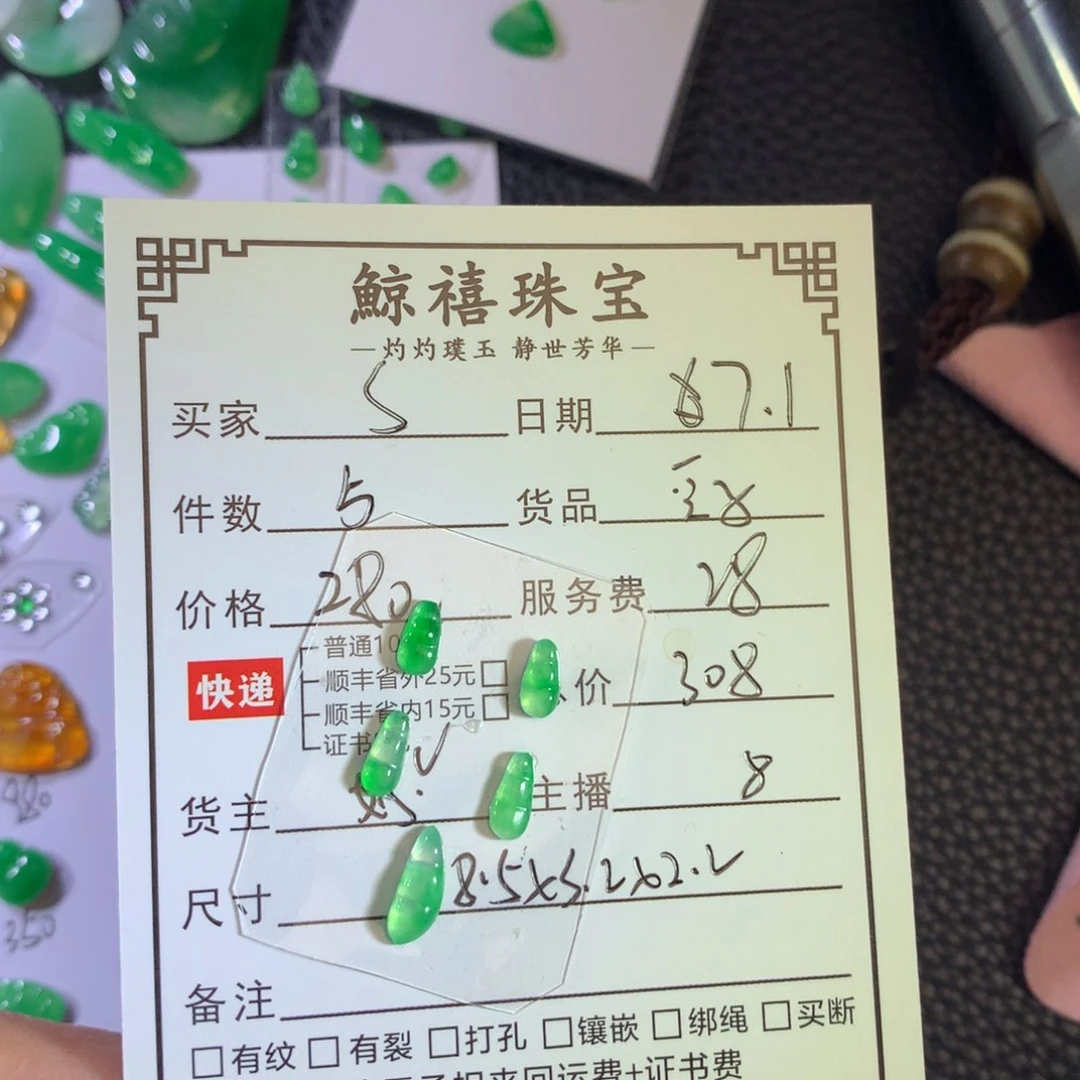 鲸禧珠宝
—灼灼璞玉 静世芳华—
买家 S 日期 7.1
件数 5 货品
价格 280 服务费 28
普通10
快递 顺丰省外25元□ 价 308
顺丰省内15元□
证书
货主 主播 8
尺寸 8.5x3.2x2.2
备注
□有纹 □有裂 □打孔 □镶嵌 □绑绳 □买断
来回运费+证书费
350